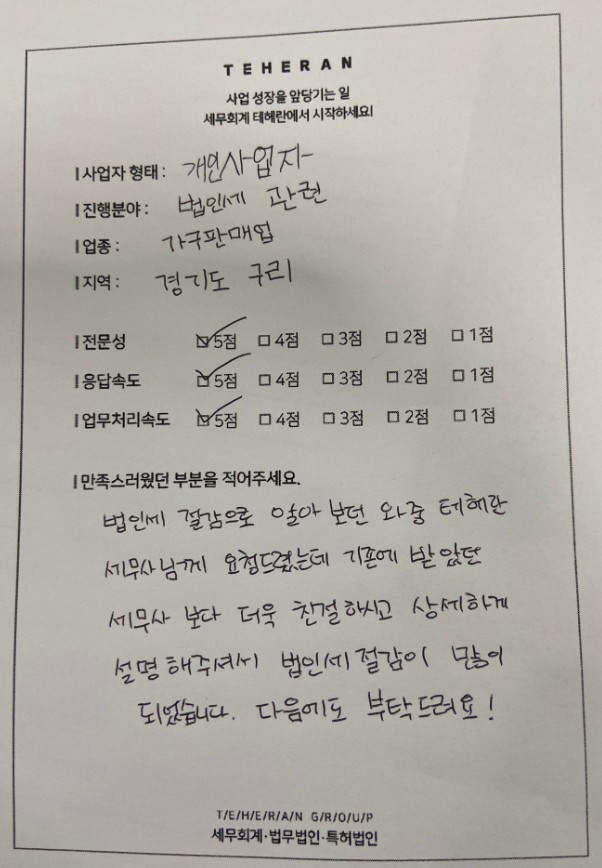 TEHERAN
사업 성장을 앞당기는 일
세무회계 테헤란에서 시작하세요!
사업자 형태 : 개인사업자
진행분야 : 법인세 관련
업종 : 가구판매업
지역 : 경기도 구리
전문성 ☑ 5점 ☐ 4점 ☐ 3점 ☐ 2점 ☐ 1점
응답속도 ☑ 5점 ☐ 4점 ☐ 3점 ☐ 2점 ☐ 1점
업무처리속도 ☑ 5점 ☐ 4점 ☐ 3점 ☐ 2점 ☐ 1점
만족스러웠던 부분을 적어주세요.
법인세 절감으로 알아 보던 와중 테헤란
세무사님께 요청드렸는데 기존에 받았던
세무사 보다 더욱 친절하시고 상세하게
설명해주셔서 법인세 절감이 많이
되었습니다. 다음에도 부탁드려요!
T/E/H/E/R/A/N G/R/O/U/P
세무회계·법무법인·특허법인